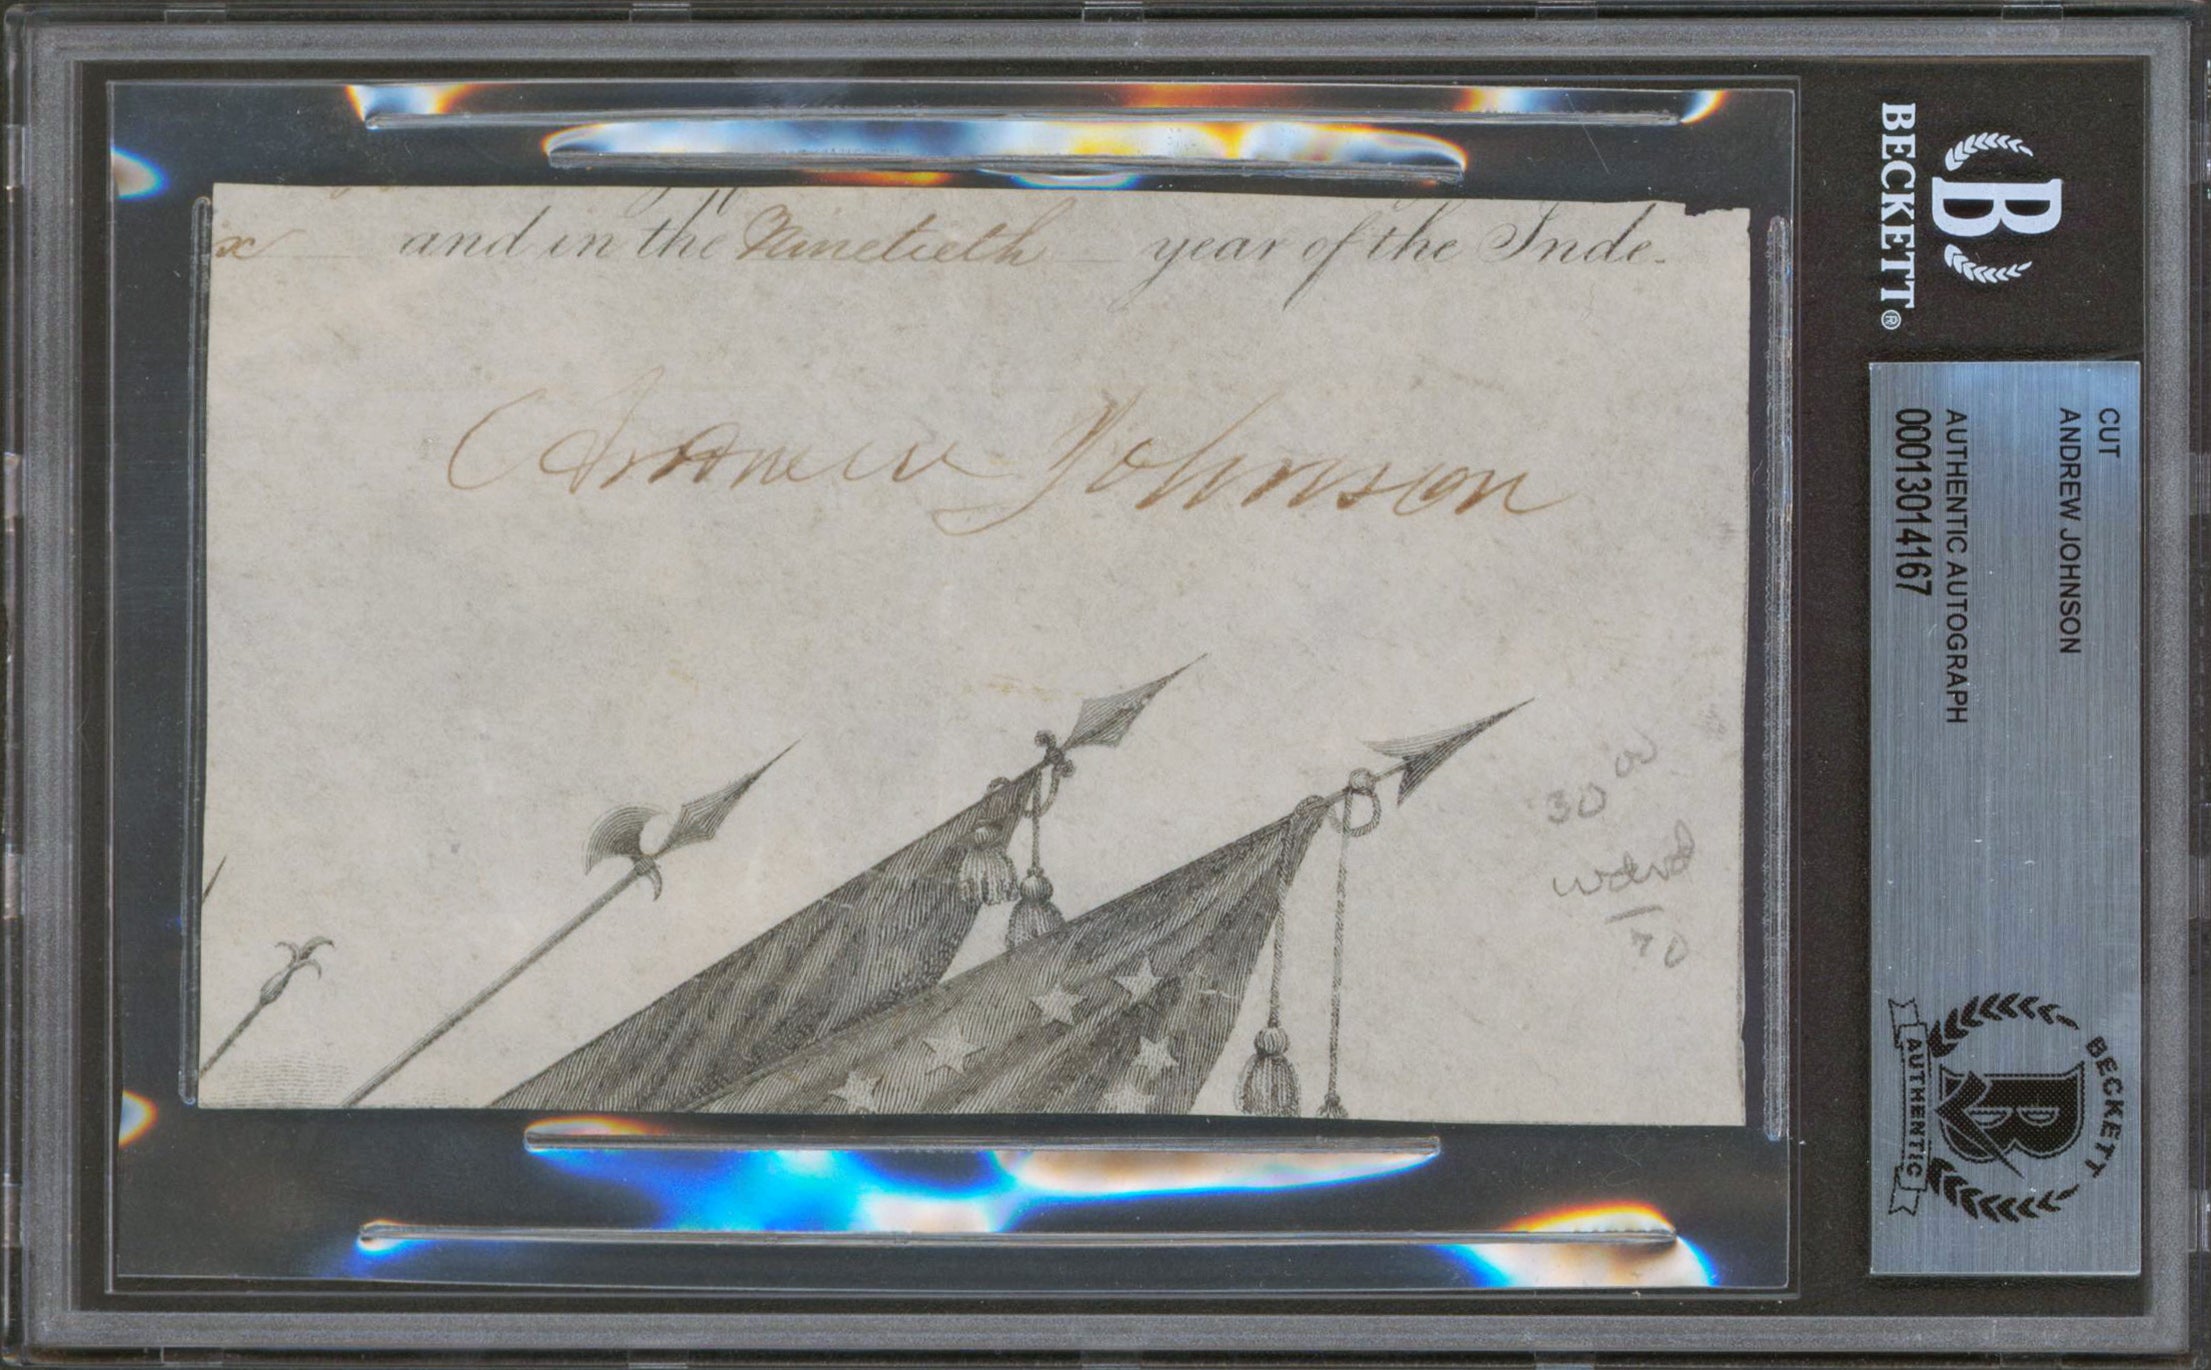 x and in the Ninetieth year of the Inde-
Andrew Johnson
30 00
70
BECKETT®
CUT
ANDREW JOHNSON
AUTHENTIC AUTOGRAPH
00013014167
BECKETT
AUTHENTIC